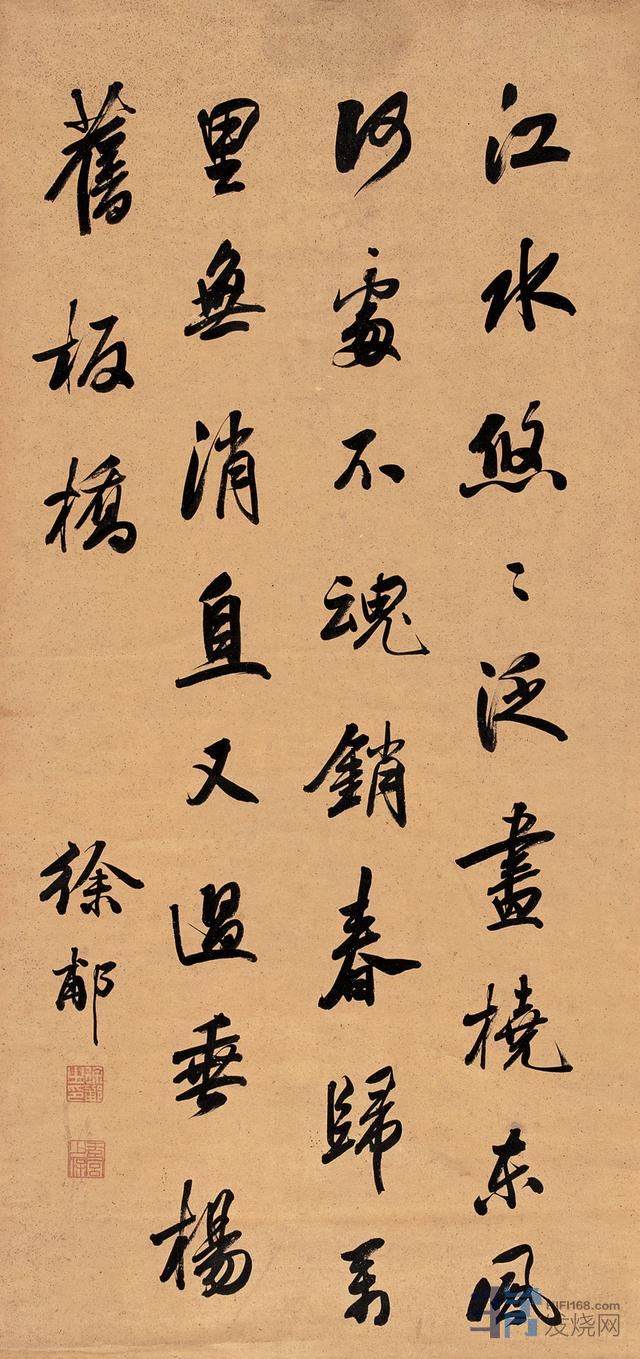 江水悠〻泛畫橈東風
何處不魂銷春歸萬
里無消息又過垂楊
舊板橋
徐郙
HIFI168.com
发烧网